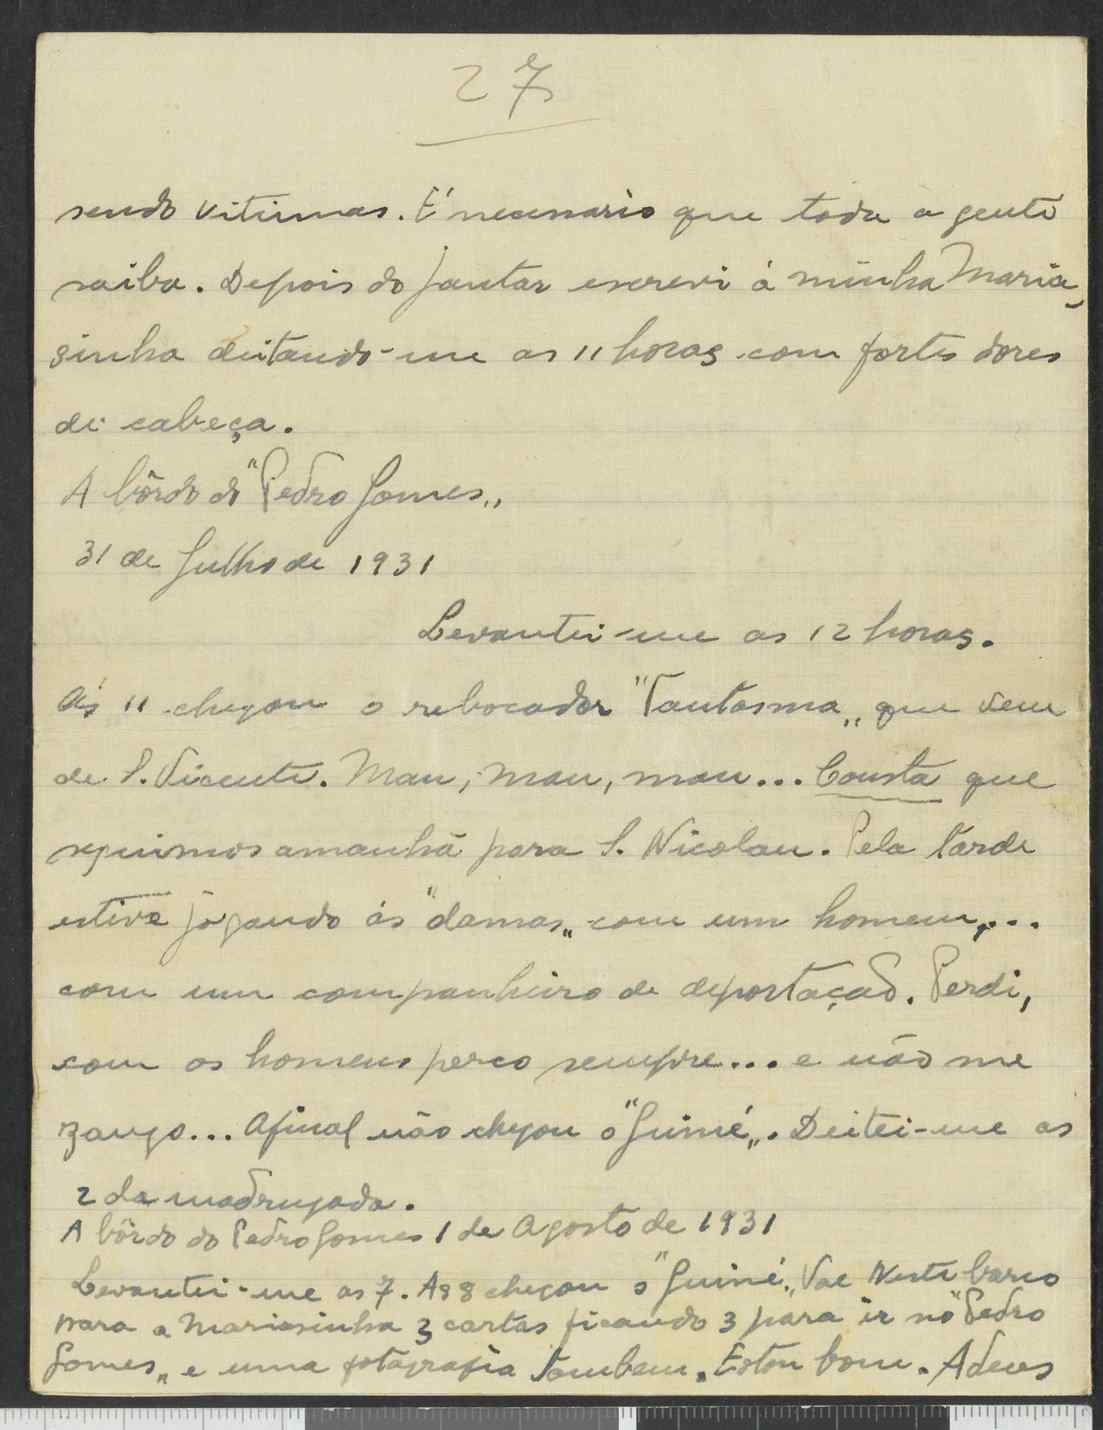 27
sendo vitimas. É necessario que toda a gente
saiba. Depois do jantar escrevi á minha Maria-
sinha deitando-me as 11 horas com fortes dores
de cabeça.
A bôrdo do "Pedro Gomes„
31 de Julho de 1931
Levantei-me as 12 horas.
Ás 11 chegou o rebocador "Fantasma„ que vem
de S. Vicente. Mau, mau, mau... Consta que
seguimos amanhã para S. Nicolau. Pela tarde
estive jogando ás "damas„ com um homem,...
com um companheiro de deportação. Perdi,
com os homens perco sempre... e não me
zango... Afinal não chegou o "Guiné„. Deitei-me as
2 da madrugada.
A bôrdo do Pedro Gomes 1 de Agosto de 1931
Levantei-me as 7. As 8 chegou o "Guiné„. Vae neste barco
para a Mariasinha 3 cartas ficando 3 para ir no "Pedro
Gomes„ e uma fotografia tambem. Estou bom. Adeus